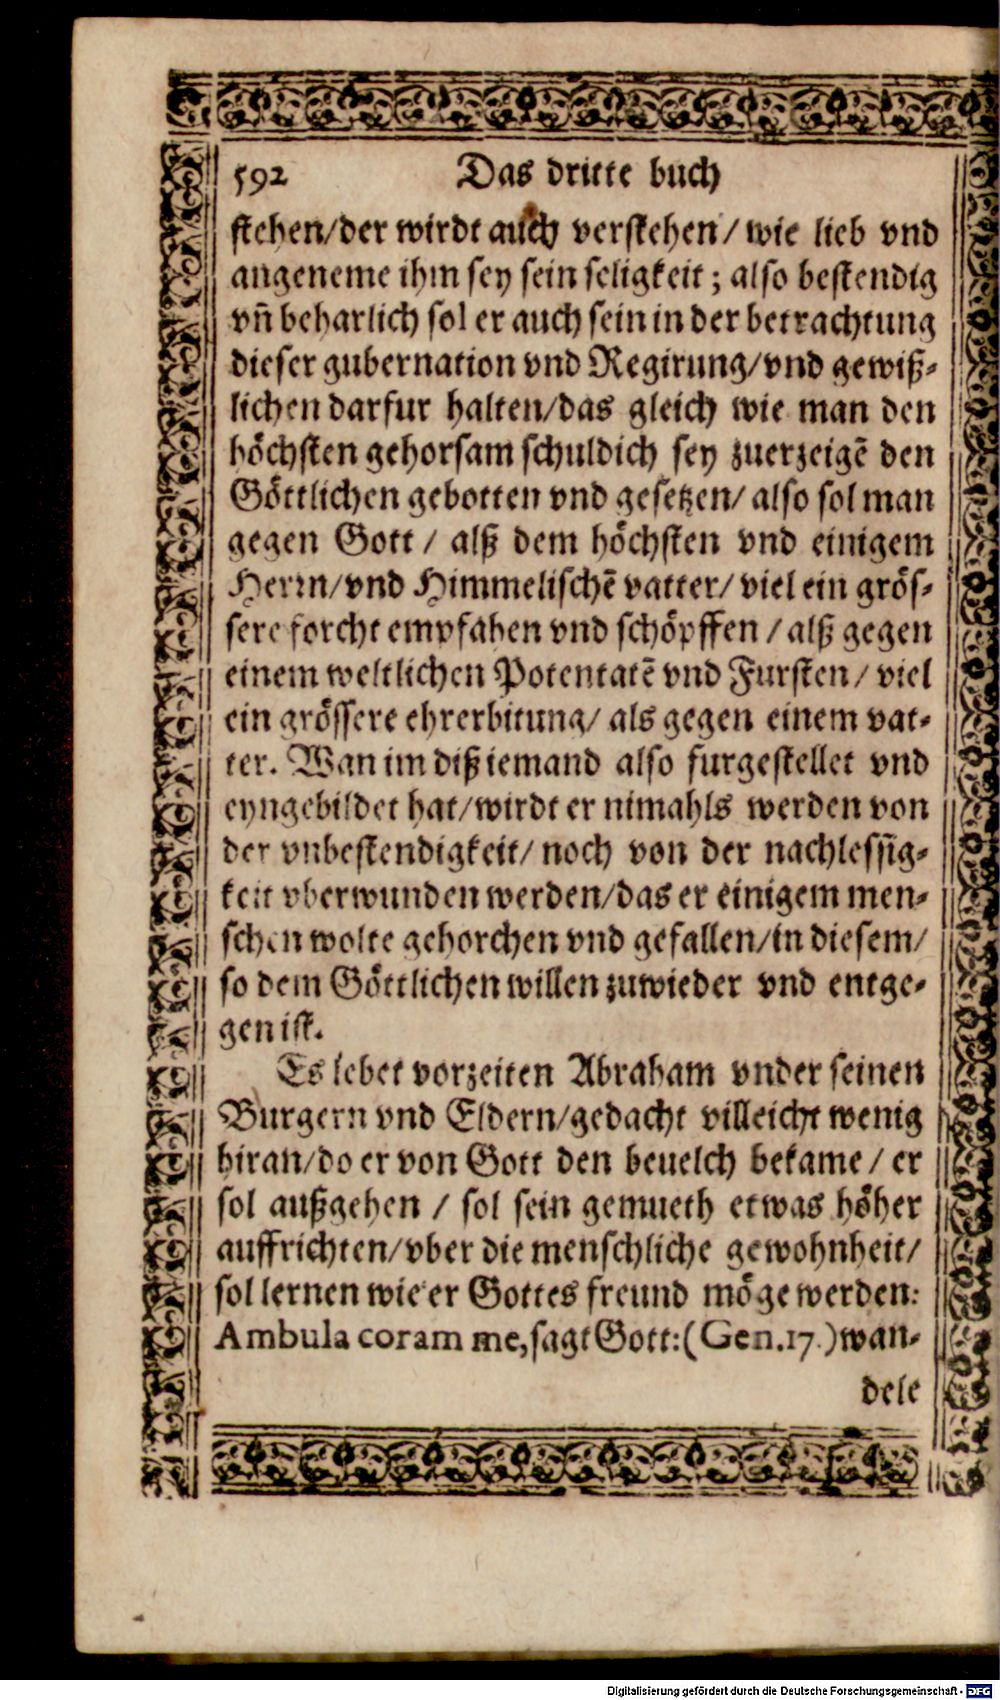 592 Das dritte buch
stehen/der wirdt auch verstehen/ wie lieb vnd
angeneme ihm sey sein seligkeit; also bestendig
vn̄ beharlich sol er auch sein in der betrachtung
dieser gubernation vnd Regirung/vnd gewiß-
lichen darfur halten/das gleich wie man den
höchsten gehorsam schuldich sey zuerzeigē den
Göttlichen gebotten vnd gesetzen/ also sol man
gegen Gott / alß dem höchsten vnd einigem
Herrn/vnd Himmelischē vatter/ viel ein grös-
sere forcht empfahen vnd schöpffen / alß gegen
einem weltlichen Potentatē vnd Fursten/ viel
ein grössere ehrerbitung/ als gegen einem vat-
ter. Wan im diß iemand also furgestellet vnd
eyngebildet hat/wirdt er nimahls werden von
der vnbestendigkeit/ noch von der nachlessig-
keit vberwunden werden/das er einigem men-
schen wolte gehorchen vnd gefallen/in diesem/
so dem Göttlichen willen zuwieder vnd entge-
gen ist.
Es lebet vorzeiten Abraham vnder seinen
Burgern vnd Eldern/gedacht villeicht wenig
hiran/do er von Gott den beuelch bekame / er
sol außgehen / sol sein gemueth etwas höher
auffrichten/vber die menschliche gewohnheit/
sol lernen wie er Gottes freund möge werden:
Ambula coram me,sagt Gott:(Gen.17.)wan-
dele
Digitalisierung gefördert durch die Deutsche Forschungsgemeinschaft - DFG